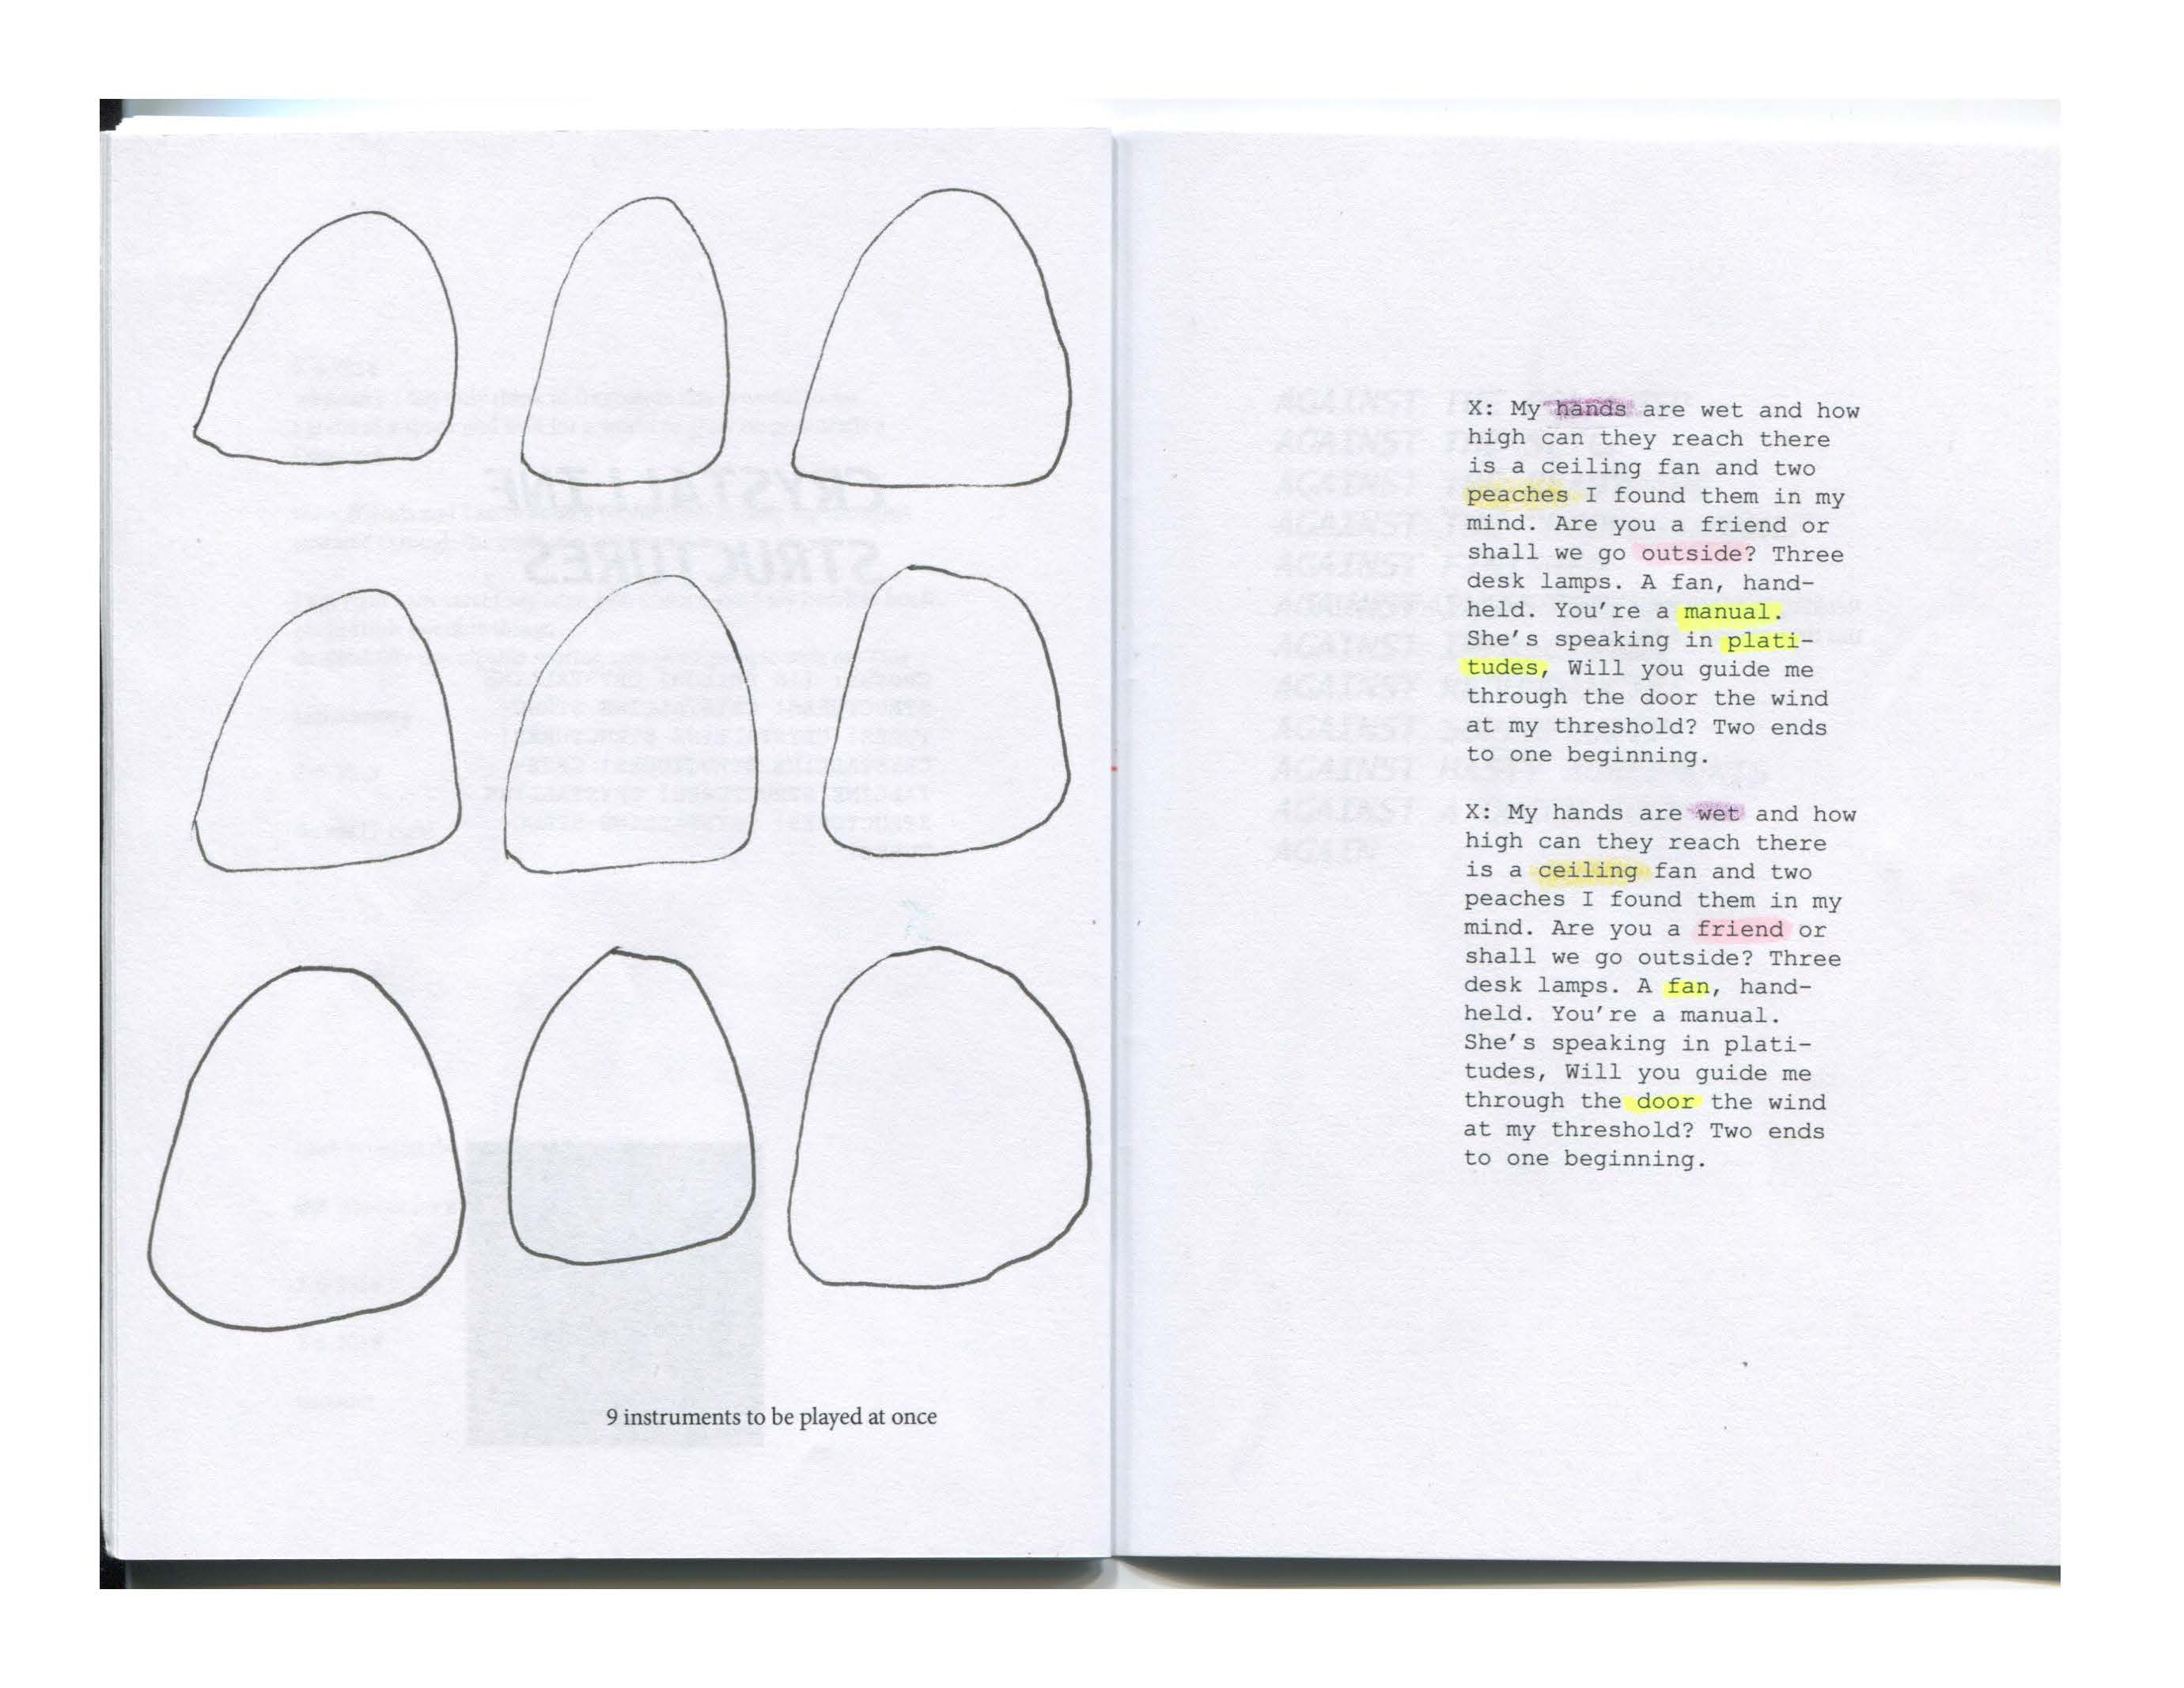 9 instruments to be played at once
X: My hands are wet and how
high can they reach there
is a ceiling fan and two
peaches I found them in my
mind. Are you a friend or
shall we go outside? Three
desk lamps. A fan, hand-
held. You're a manual.
She's speaking in plati-
tudes, Will you guide me
through the door the wind
at my threshold? Two ends
to one beginning.
X: My hands are wet and how
high can they reach there
is a ceiling fan and two
peaches I found them in my
mind. Are you a friend or
shall we go outside? Three
desk lamps. A fan, hand-
held. You're a manual.
She's speaking in plati-
tudes, Will you guide me
through the door the wind
at my threshold? Two ends
to one beginning.